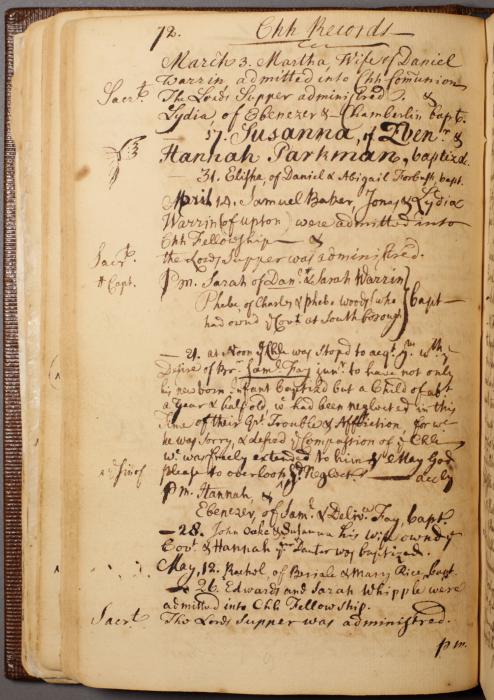 72. Chh Records
March 3. Martha, Wife of Daniel
Warrin admitted into Chh Comunion
Sacrt. The Lords Supper administred. &
Lydia, of Ebenezer & Chamberlin bapt.
17. Susanna, of Ebenr. &
Hannah Parkman, baptizd.
— 31. Elisha, of Daniel & Abigail Forbush, bapt.
April 14. Samuel Baker, Jonas & Lydia
Warrin (of upton) were admitted into
Chh Fellowship — &
Sacrt. the Lords Supper was administred.
# Capt. Pm. Sarah of Danl. & Sarah Warrin
Phebe, of Charles & Phebe woods (who bapt —
had ownd ye Covt. at Southborough
— 21. at Noon ye Chh was Stopd to acqt. ym. wth ye
Desire of Br. Saml. Fay junr. to have not only
his new born Infant Baptizd but a Child of abt
a Year & half old, wc had been neglected in this
time of their Grt. Trouble & Affliction, for wc
he was Sorry, & desird ye Compassion of ye Chh
wc. was freely extended to him & May God
please to overlook ye Neglect —
Pm. Hannah, &
Ebenezer, of Saml. & Delivce Fay, bapt.
— 28. John Oake & Susanna his wife ownd ye
Cov. & Hannah yr Dauter was baptized.
May, 12. Rachel, of Beriah & Mary Rice, bapt.
— 26. Edwards and Sarah Whipple were
admitted into Chh Fellowship.
Sacrt. The Lords Supper was administred.
p.m.